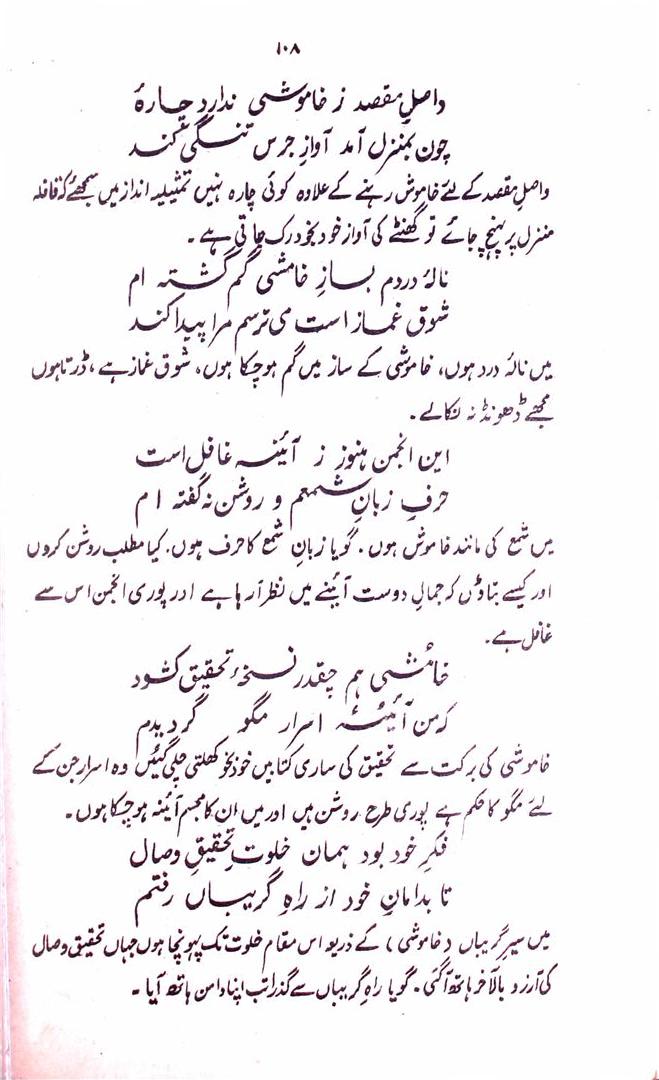 ۱۰۸
واصلِ مقصد ز خاموشی ندارد چارۂ
چون بمنزل آمد آوازِ جرس تنگی کند
واصلِ مقصد کے لئے خاموش رہنے کے علاوہ کوئی چارہ نہیں تمثیلیہ انداز میں سمجھئے کہ قافلہ
منزل پر پہنچ جائے تو گھنٹے کی آواز خود بخود رک جاتی ہے ۔
نالۂ دردم بسازِ خامشی گم گشتہ ام
شوق غماز است می ترسم مرا پیدا کند
میں نالۂ درد ہوں، خاموشی کے ساز میں گم ہو چکا ہوں، شوق غماز ہے، ڈرتا ہوں
مجھے ڈھونڈ نہ نکالے ۔
این انجمن ہنوز ز آئینہ غافل است
حرفِ زبانِ شمعم و روشن نہ گفتہ ام
میں شمع کی مانند خاموش ہوں ۔ گویا زبانِ شمع کا حرف ہوں ۔ کیا مطلب روشن کروں
اور کیسے بتاؤں کہ جمالِ دوست آئینے میں نظر آرہا ہے اور پوری انجمن اس سے
غافل ہے ۔
خامُشی ہم چقدر نسخۂ تحقیق کشود
کہ من آئینۂ اسرارِ مگو گردیدم
خاموشی کی برکت سے تحقیق کی ساری کتابیں خود بخود کھلتی چلی گئیں وہ اسرار جن کے
لئے مگو کا حکم ہے پوری طرح روشن ہیں اور میں ان کا مجسم آئینہ ہو چکا ہوں ۔
فکرِ خود بود ہمان خلوتِ تحقیقِ وصال
تا بدامانِ خود از راہِ گریباں رفتم
میں سیرِ گریباں (خاموشی) کے ذریعہ اس مقامِ خلوت تک پہونچا ہوں جہاں تحقیق وصال
کی آرزو بالآخر ہاتھ آگئی ۔ گویا راہِ گریباں سے گذرا تب اپنا دامن ہاتھ آیا ۔